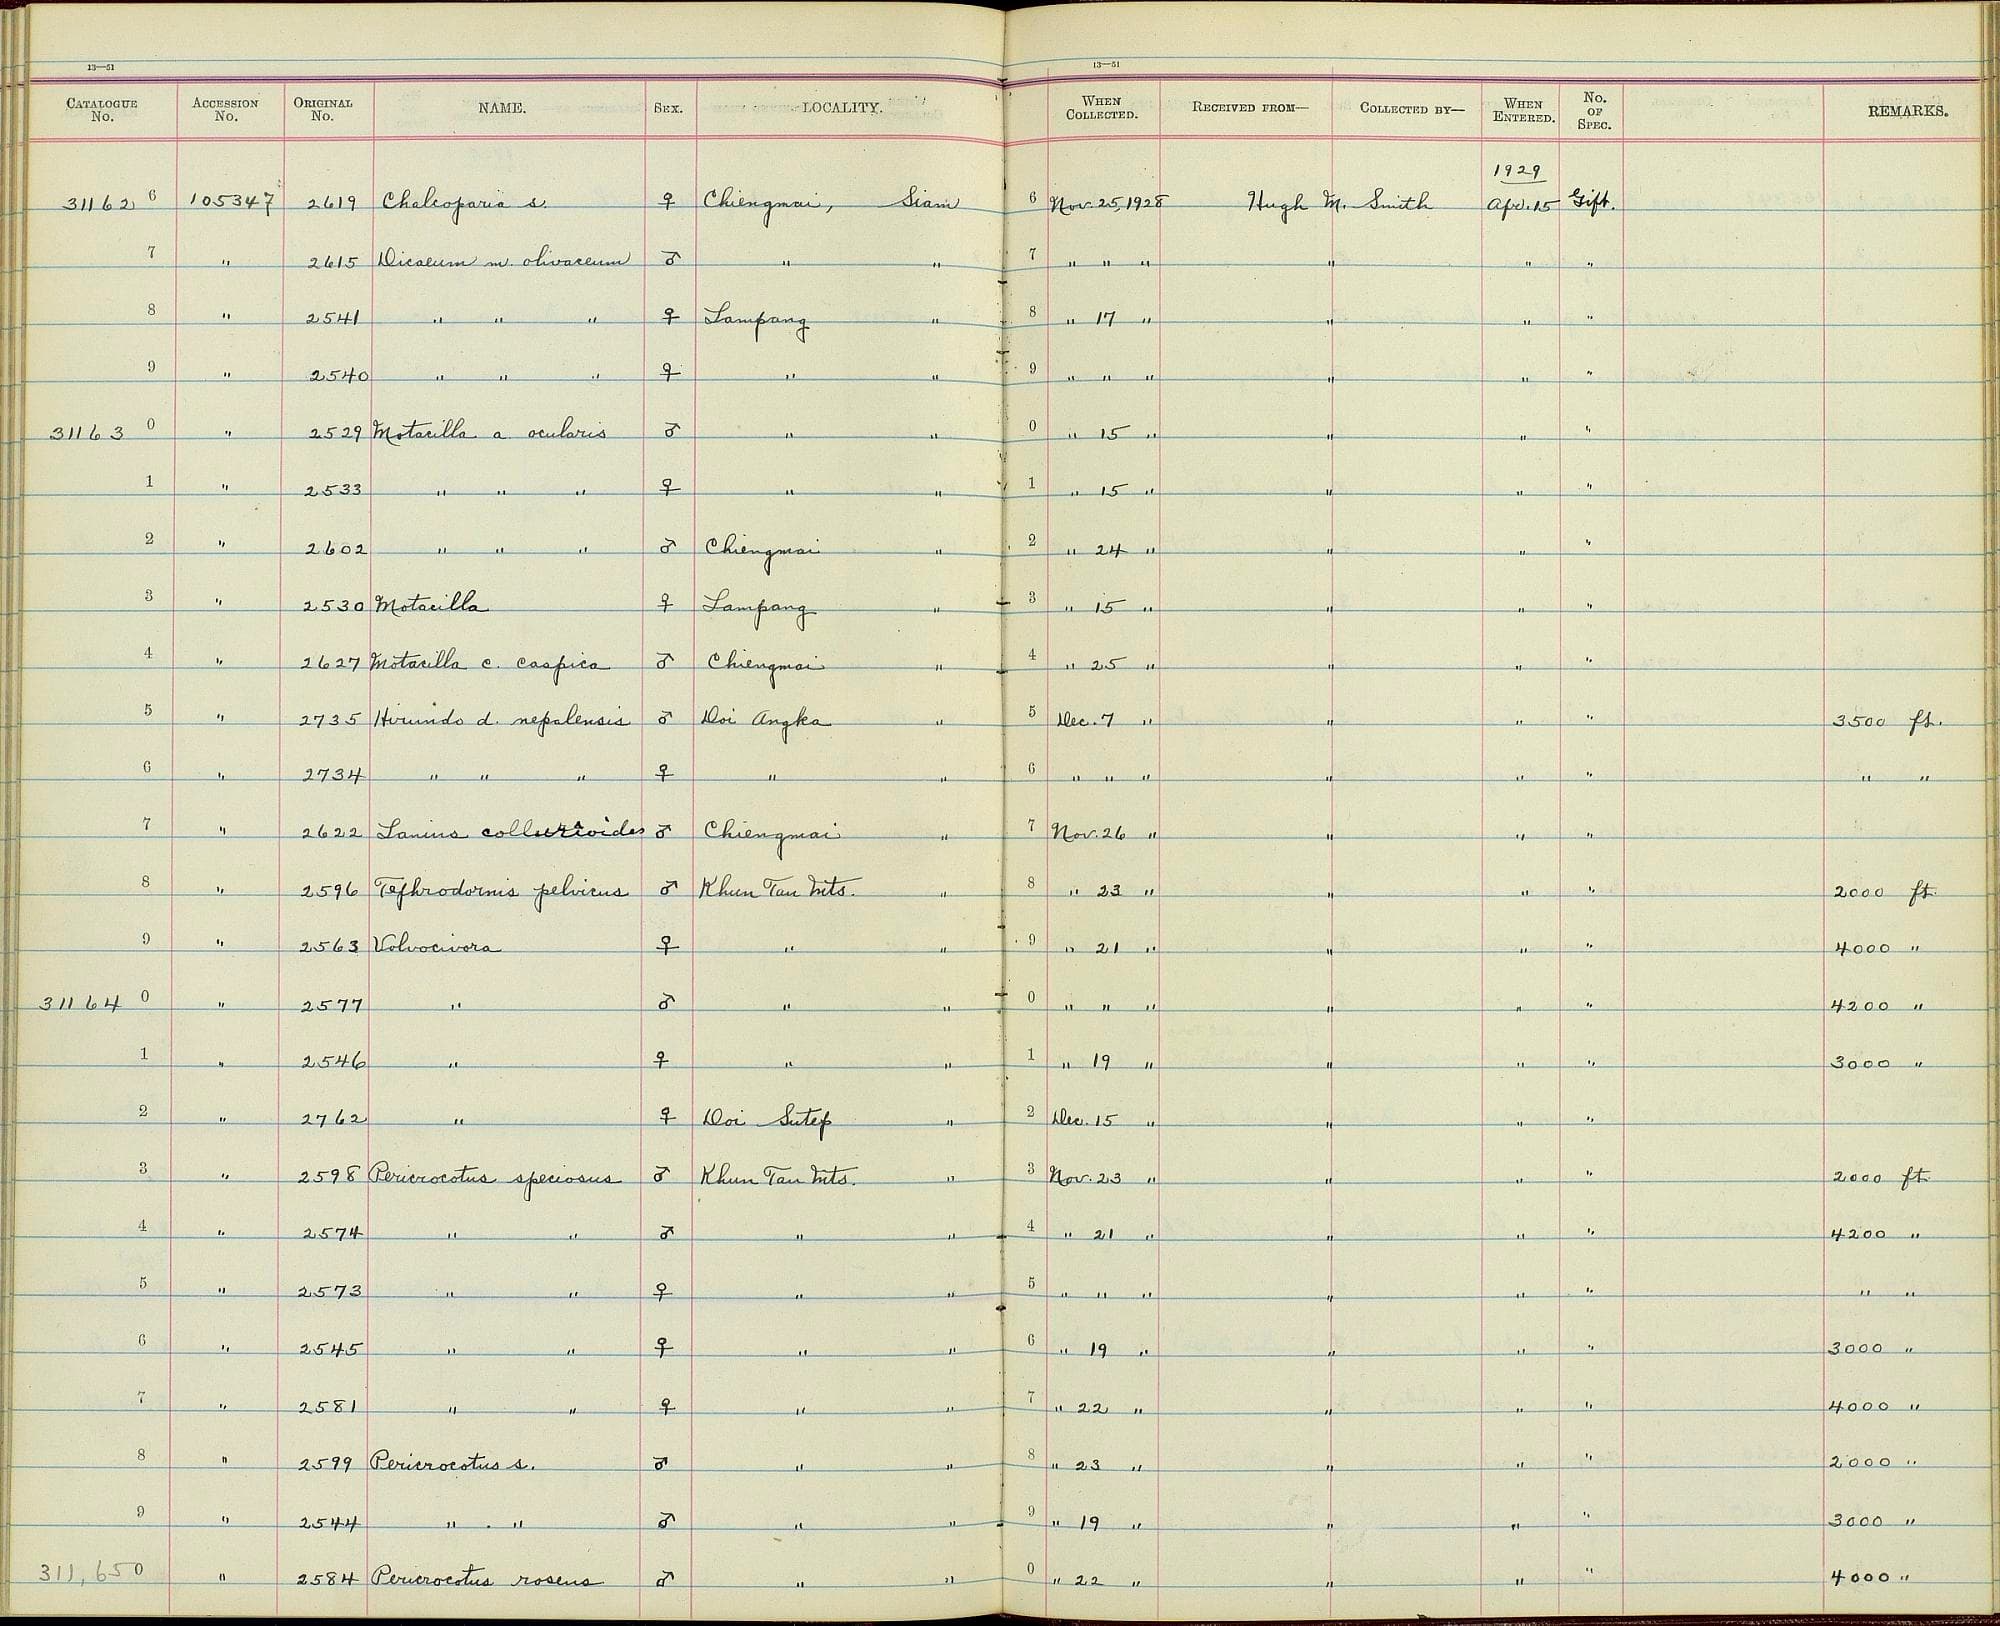 13—51 13—51
CATALOGUE No. ACCESSION No. ORIGINAL No. NAME. SEX. LOCALITY. WHEN COLLECTED. RECEIVED FROM— COLLECTED BY— WHEN ENTERED. No. OF SPEC. REMARKS.
1929
31162 6 105347 2619 Chalcoparia s. ♀ Chiengmai, Siam 6 Nov. 25, 1928 Hugh M. Smith Apr. 15 Gift.
7 " 2615 Dicaeum m. olivaceum ♂ " " 7 " " " " " "
8 " 2541 " " " ♀ Lampang " 8 " 17 " " " "
9 " 2540 " " " ♀ " " 9 " " " " " "
31163 0 " 2529 Motacilla a. ocularis ♂ " " 0 " 15 " " " "
1 " 2533 " " " ♀ " " 1 " 15 " " " "
2 " 2602 " " " ♂ Chiengmai " 2 " 24 " " " "
3 " 2530 Motacilla ♀ Lampang " 3 " 15 " " " "
4 " 2627 Motacilla c. caspica ♂ Chiengmai " 4 " 25 " " " "
5 " 2735 Hirundo d. nepalensis ♂ Doi Angka " 5 Dec. 7 " " " " 3500 ft.
6 " 2734 " " " ♀ " " 6 " " " " " " " "
7 " 2622 Lanius collurioides ♂ Chiengmai " 7 Nov. 26 " " " "
8 " 2596 Tephrodornis pelvicus ♂ Khun Tan Mts. " 8 " 23 " " " " 2000 ft.
9 " 2563 Volvocivora ♀ " " 9 " 21 " " " " 4000 "
31164 0 " 2577 " ♂ " " 0 " " " " " " 4200 "
1 " 2546 " ♀ " " 1 " 19 " " " " 3000 "
2 " 2762 " ♀ Doi Sutep " 2 Dec. 15 " " " "
3 " 2598 Pericrocotus speciosus ♂ Khun Tan Mts. " 3 Nov. 23 " " " " 2000 ft
4 " 2574 " " ♂ " " 4 " 21 " " " " 4200 "
5 " 2573 " " ♀ " " 5 " " " " " " " "
6 " 2545 " " ♀ " " 6 " 19 " " " " 3000 "
7 " 2581 " " ♀ " " 7 " 22 " " " " 4000 "
8 " 2599 Pericrocotus s. ♂ " " 8 " 23 " " " " 2000 "
9 " 2544 " . " ♂ " " 9 " 19 " " " " 3000 "
311,65 0 " 2584 Pericrocotus roseus ♂ " " 0 " 22 " " " " 4000 "